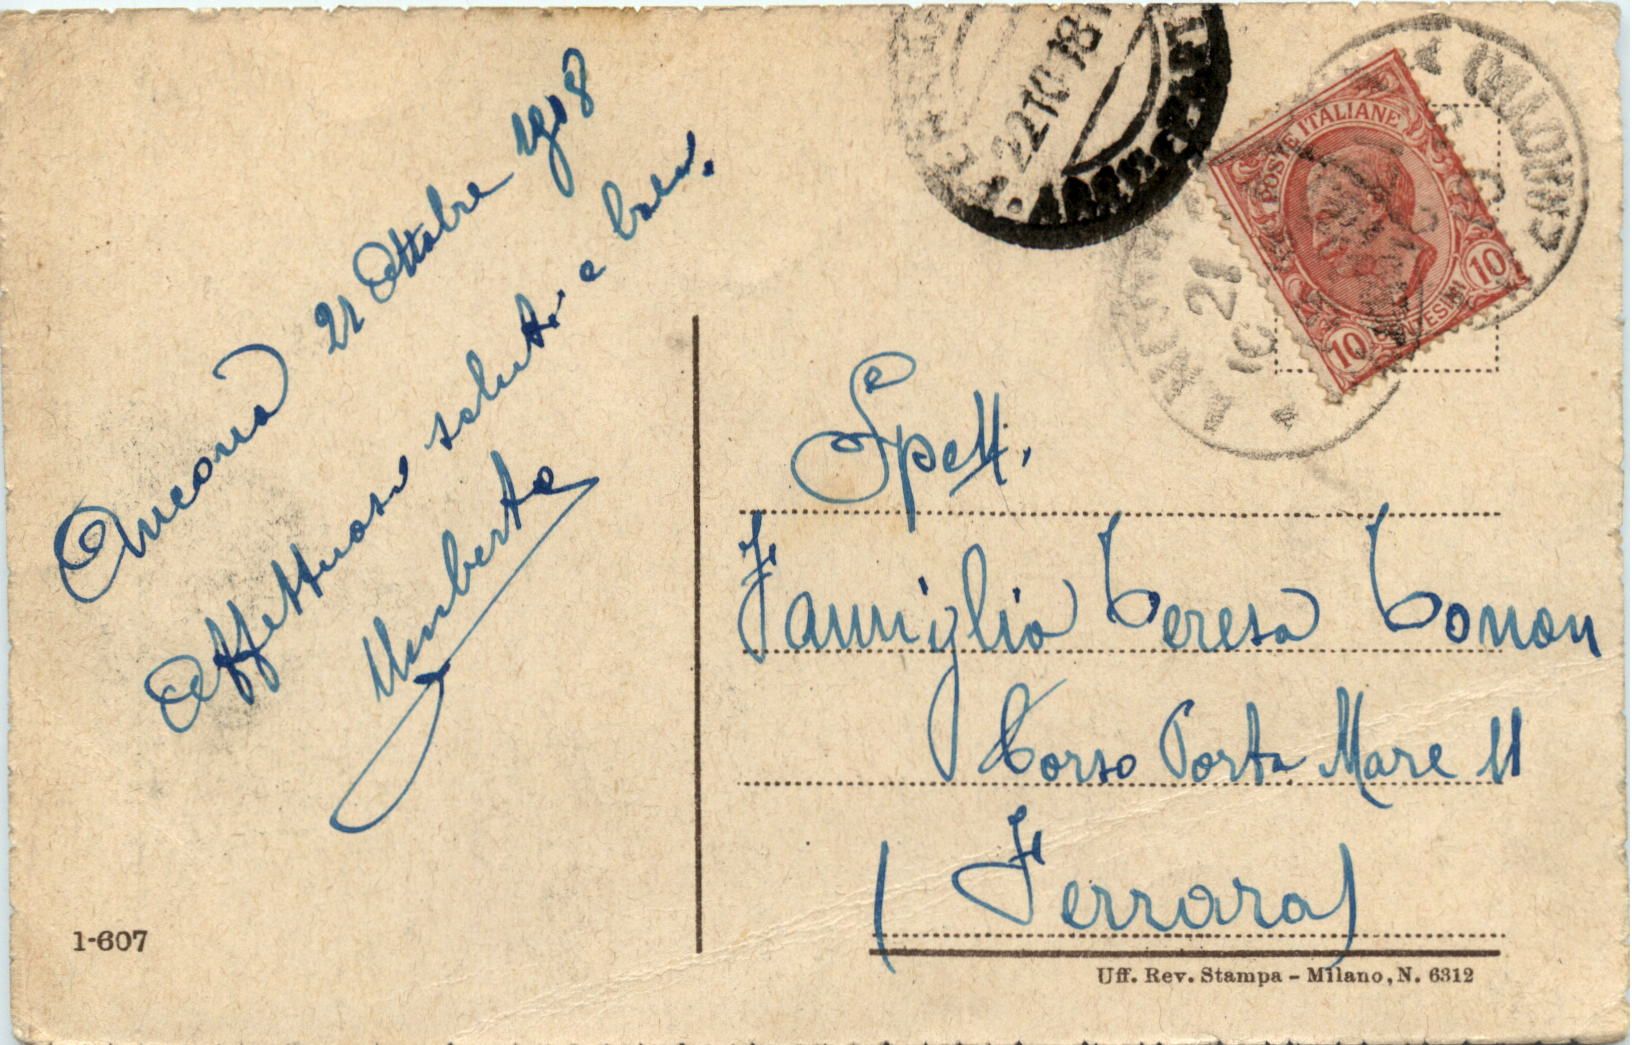 Ancona 21 Ottobre 1918
Affettuosi saluti e baci.
Umberto
22 10 18
POSTE ITALIANE
10 10
21
10
Spett.
Famiglia Teresa Conon
Corso Porta Mare 11
(Ferrara)
1-607
Uff. Rev. Stampa - Milano, N. 6312